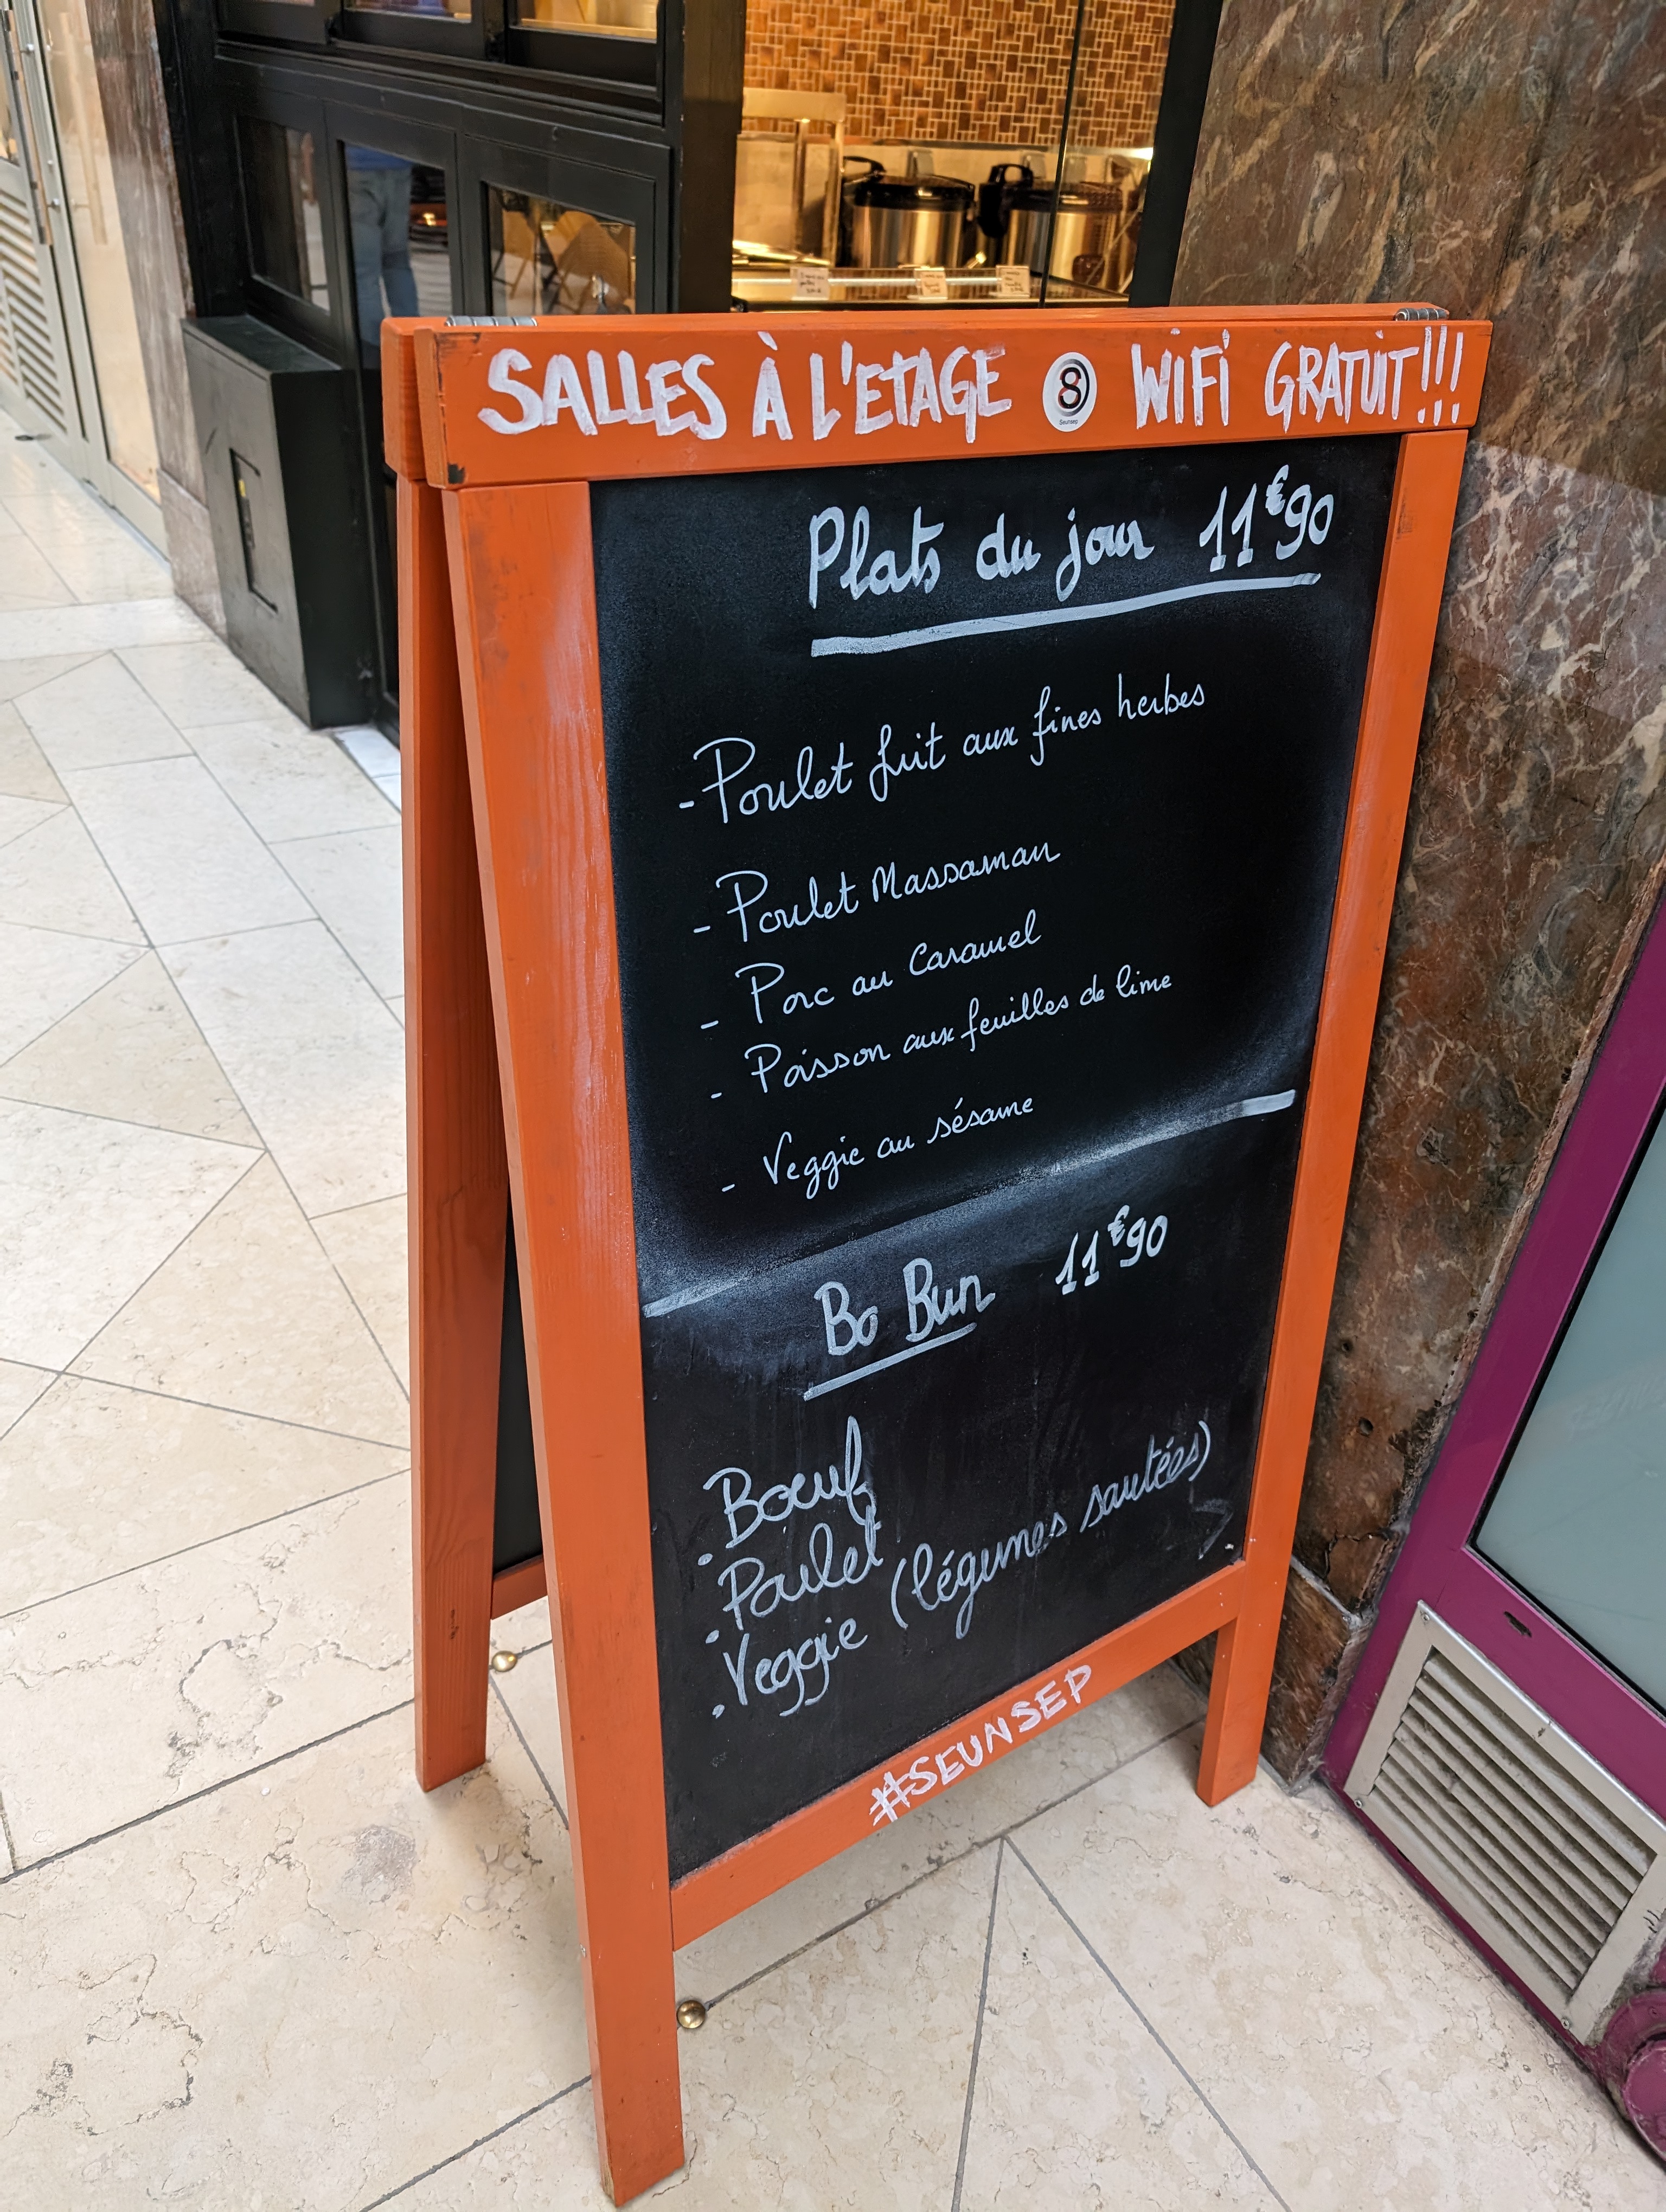 SALLES À L'ETAGE 8 WIFI GRATUIT!!!
Seunsep
Plats du jour 11€90
- Poulet frit aux fines herbes
- Poulet Massaman
- Porc au Caramel
- Poisson aux feuilles de lime
- Veggie au sésame
Bo Bun 11€90
. Boeuf
. Poulet
. Veggie (légumes sautées)
#SEUNSEP